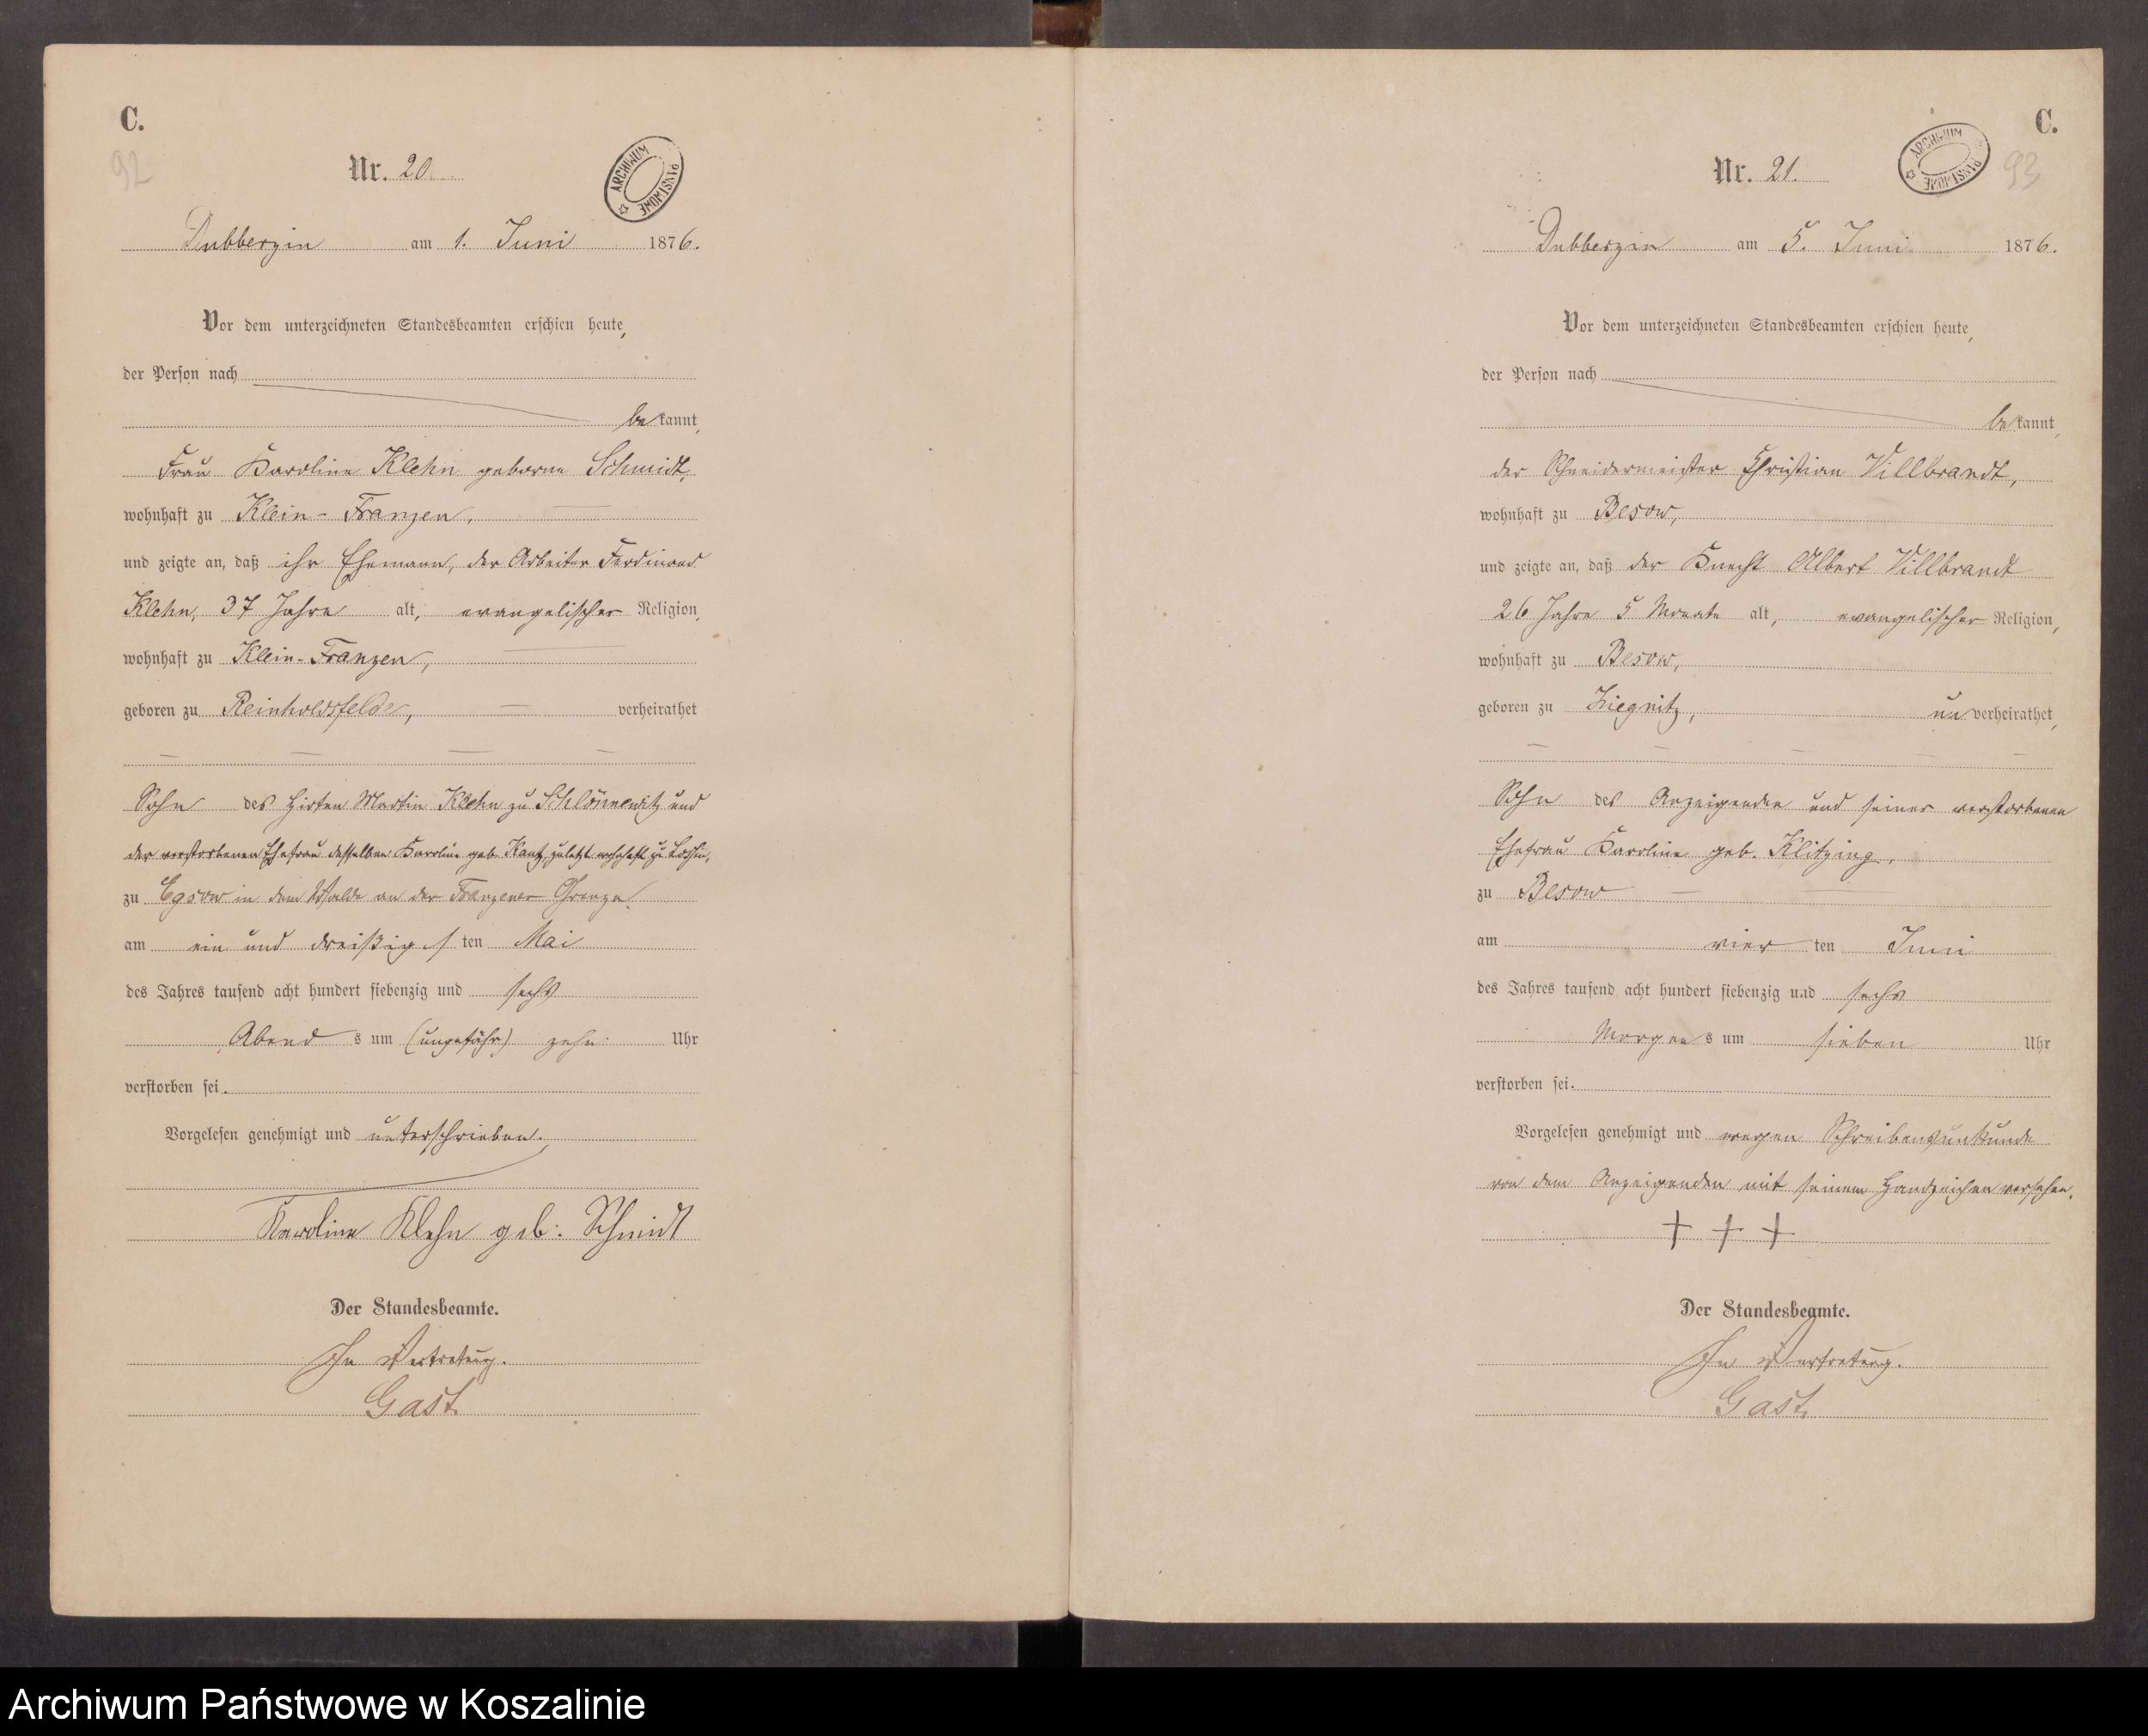 C.
92
Nr. 20.
ARCHIWUM PAŃSTWOWE
Dubberzin am 1. Juni 1876.
Vor dem unterzeichneten Standesbeamten erschien heute,
der Person nach
bekannt,
Frau Karoline Klehn geborne Schmidt,
wohnhaft zu Klein-Franzen,
und zeigte an, daß ihr Ehemann, der Arbeiter Ferdinand
Klehn, 37 Jahre alt, evangelischer Religion,
wohnhaft zu Klein-Franzen,
geboren zu Reinholdsfelde, verheirathet
Sohn des Hirten Martin Klehn zu Schlönnewitz und
der verstorbenen Ehefrau desselben Karoline geb. zuletzt wohnhaft zu
zu Egsow in dem Walde an der Franzener Grenze
am ein und dreißigsten Mai
des Jahres tausend acht hundert siebenzig und sechs
Abends um (ungefähr) zehn Uhr
verstorben sei.
Vorgelesen genehmigt und unterschrieben.
Karoline Klehn geb: Schmidt
Der Standesbeamte.
In Vertretung.
Gast.
C.
93
Nr. 21.
ARCHIWUM PAŃSTWOWE
Dubberzin am 5. Juni 1876.
Vor dem unterzeichneten Standesbeamten erschien heute,
der Person nach
bekannt,
der Schneidermeister Christian Villbrandt,
wohnhaft zu Besow,
und zeigte an, daß der Knecht Albert Villbrandt
26 Jahre 5 Monate alt, evangelischer Religion,
wohnhaft zu Besow,
geboren zu Ziegnitz, unverheirathet,
Sohn des Anzeigenden und seiner verstorbenen
Ehefrau Karoline geb. Klitzing,
zu Besow
am vierten Juni
des Jahres tausend acht hundert siebenzig und sechs
Morgens um sieben Uhr
verstorben sei.
Vorgelesen genehmigt und wegen Schreibensunkunde
von dem Anzeigenden mit seinem Handzeichen versehen.
+ + +
Der Standesbeamte.
In Vertretung.
Gast.
Archiwum Państwowe w Koszalinie